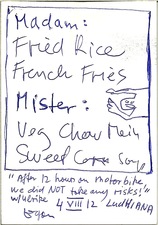 Madam:
Fried Rice
French Fries
Mister:
Veg Chow Mein
Sweet Corn Soup
"After 12 hours on motorbike
we did NOT take any risks!"
w/Ulrike 4 VIII 12 LudHIANA